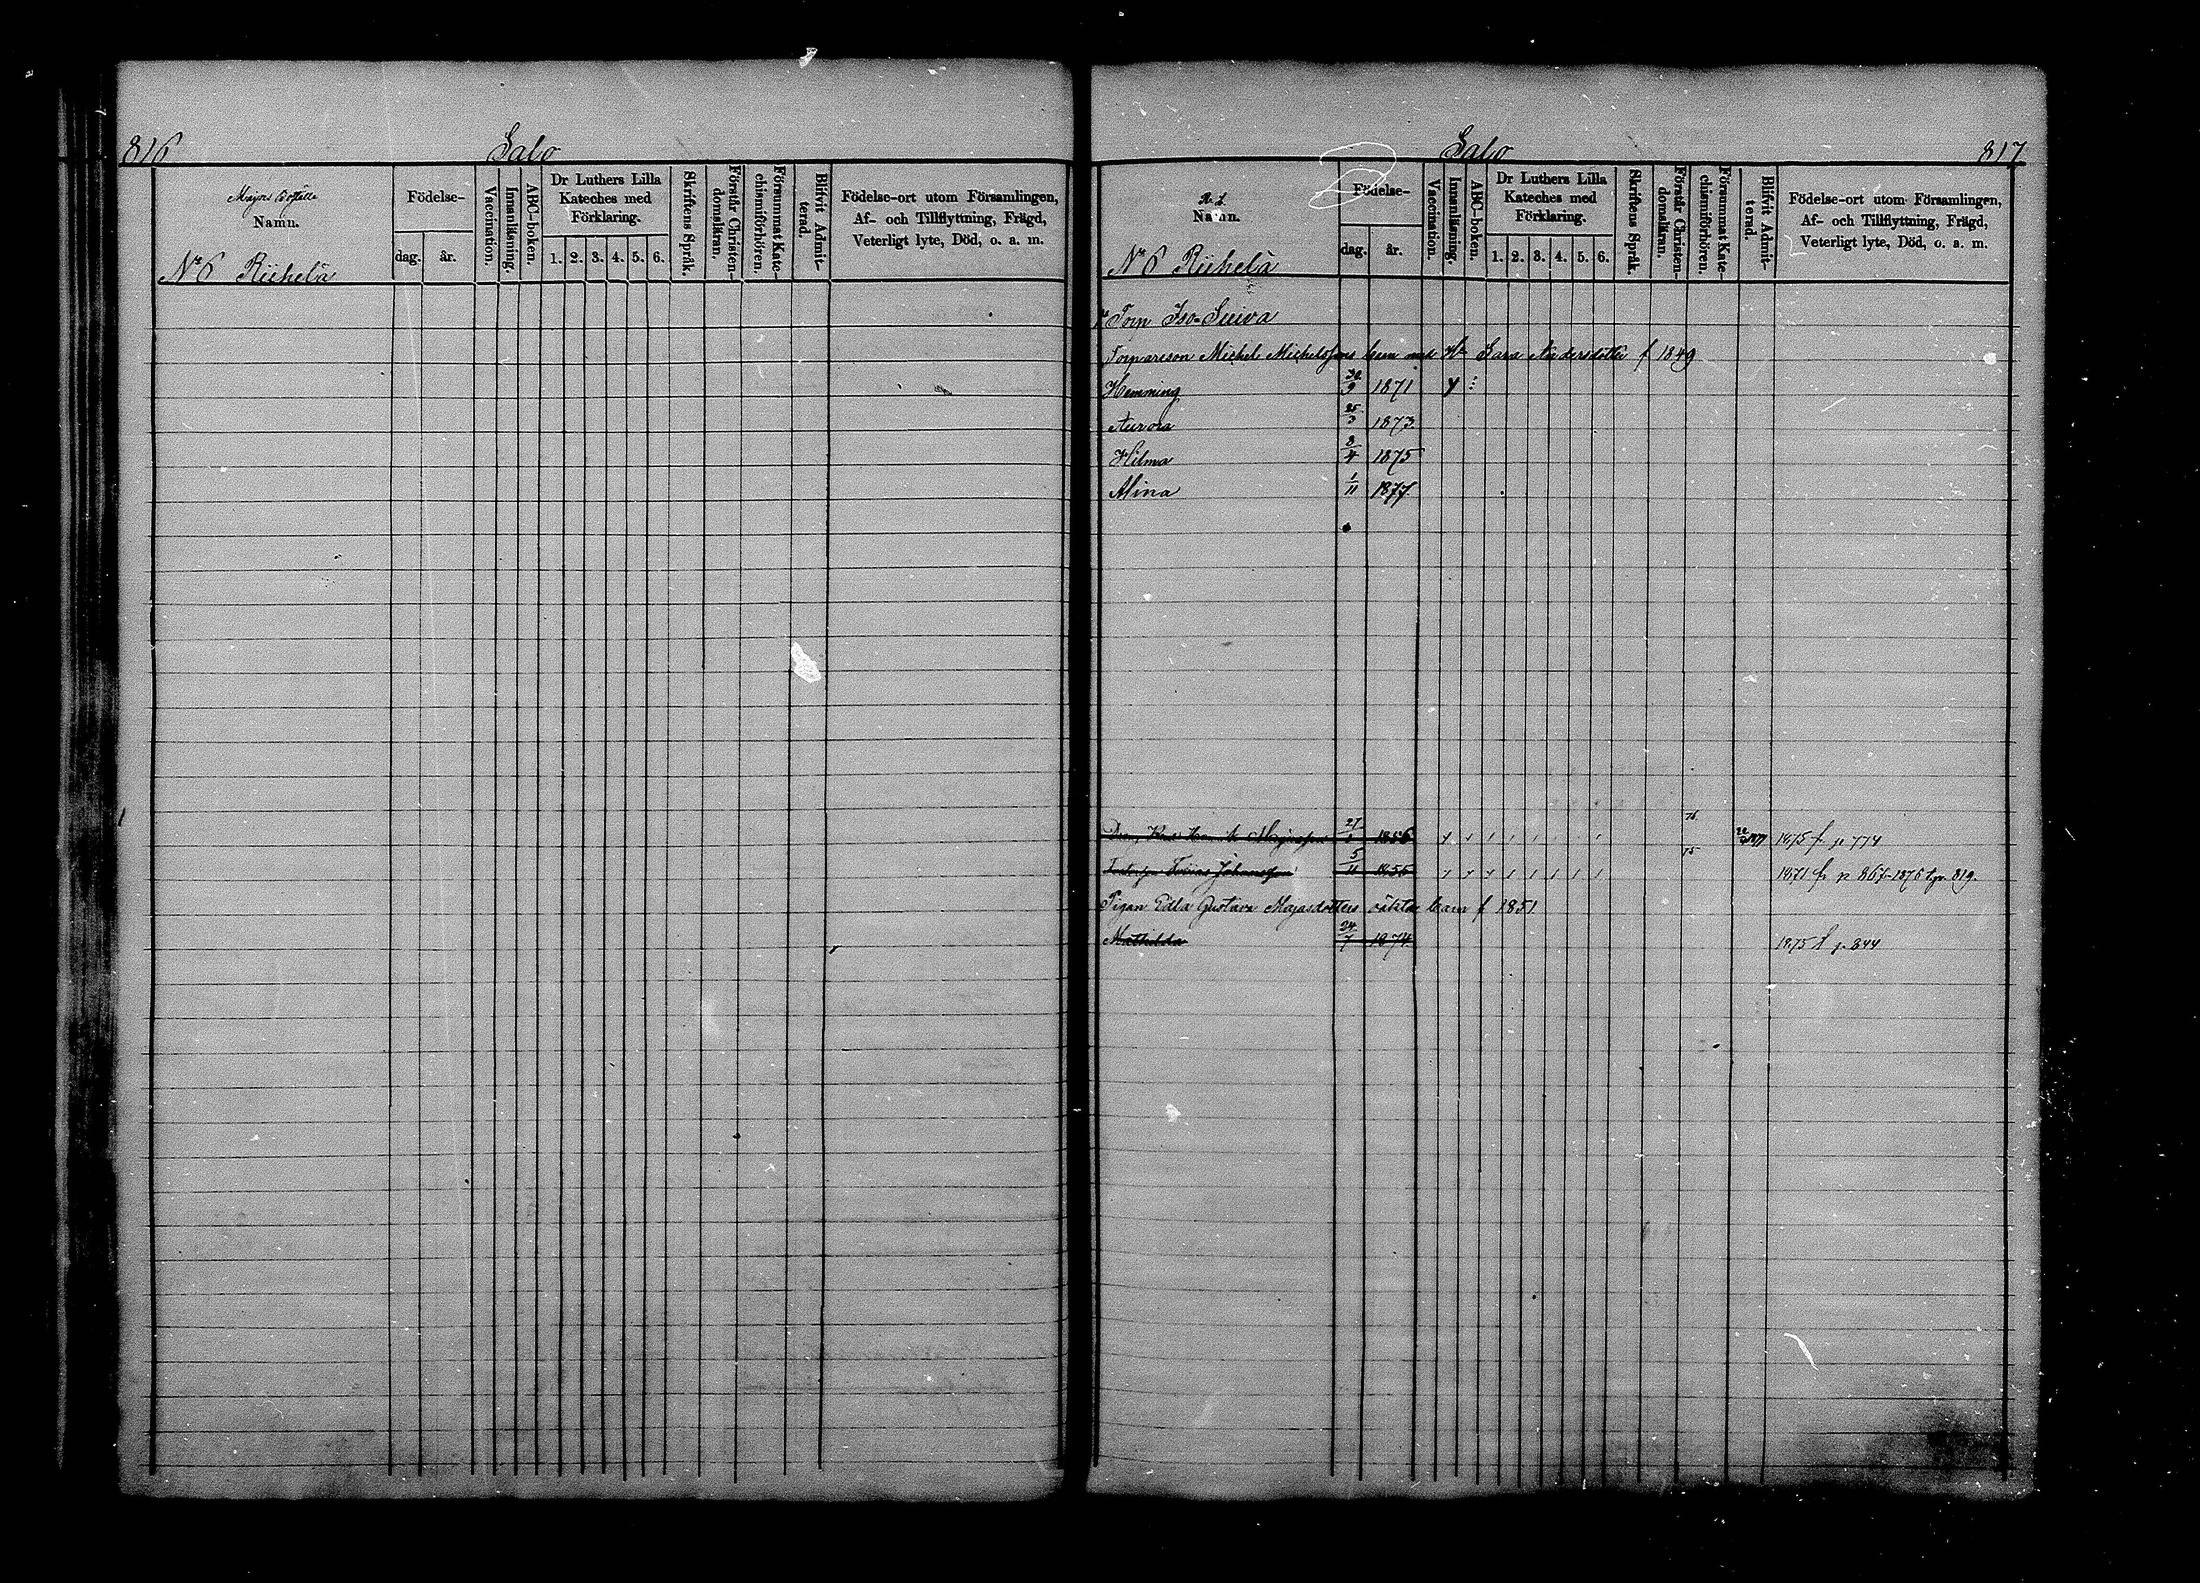 816 Salo
Majors Boställe
Namn.
Födelse-
dag. år.
Vaccination.
Innanläsning.
ABC-boken.
Dr Luthers Lilla
Kateches med
Förklaring.
1. 2. 3. 4. 5. 6.
Skriftens Språk.
Förstår Christen-
domsläran.
Försummat Kate-
chismiförhören.
Blifvit Admit-
terad.
Födelse-ort utom Församlingen,
Af- och Tillflyttning, Frägd,
Veterligt lyte, Död, o. a. m.
No 6 Riihelä
Salo 817
Namn.
Födelse-
dag. år.
Vaccination.
Innanläsning.
ABC-boken.
Dr Luthers Lilla
Kateches med
Förklaring.
1. 2. 3. 4. 5. 6.
Skriftens Språk.
Förstår Christen-
domsläran.
Försummat Kate-
chismiförhören.
Blifvit Admit-
terad.
Födelse-ort utom Församlingen,
Af- och Tillflyttning, Frägd,
Veterligt lyte, Död, o. a. m.
No 6 Riihelä
Torp Iso-Suiva
Torpareson Michel Michelssons barn med Sara Andersdotter f 1849
Hemming 30/9 1871
Aurora 25/3 1873
Hilma 8/4 1875
Alina 1/11 1877
27 1856 76 1875 f. p 774
Tobias Johansson 5/11 1855 75 1871 fr p 867-1876 p. 819.
Pigan Edla Gustava Majasdotters oäkta barn f 1851
Mathilda 24/7 1874 1875 f p. 844